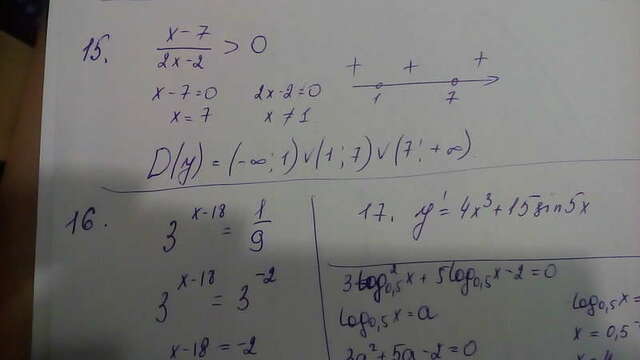 15. (x-7)/(2x-2) > 0
x-7=0 2x-2=0
x=7 x≠1
+ + +
1 7
D(y) = (-∞; 1) ∨ (1; 7) ∨ (7; +∞)
16. 3^(x-18) = 1/9
3^(x-18) = 3^(-2)
x-18 = -2
17. y' = 4x³ + 15 sin 5x
3log²₀,₅x + 5log₀,₅x - 2 = 0
log₀,₅x = a
3a² + 5a - 2 = 0
log₀,₅x =
x = 0,5